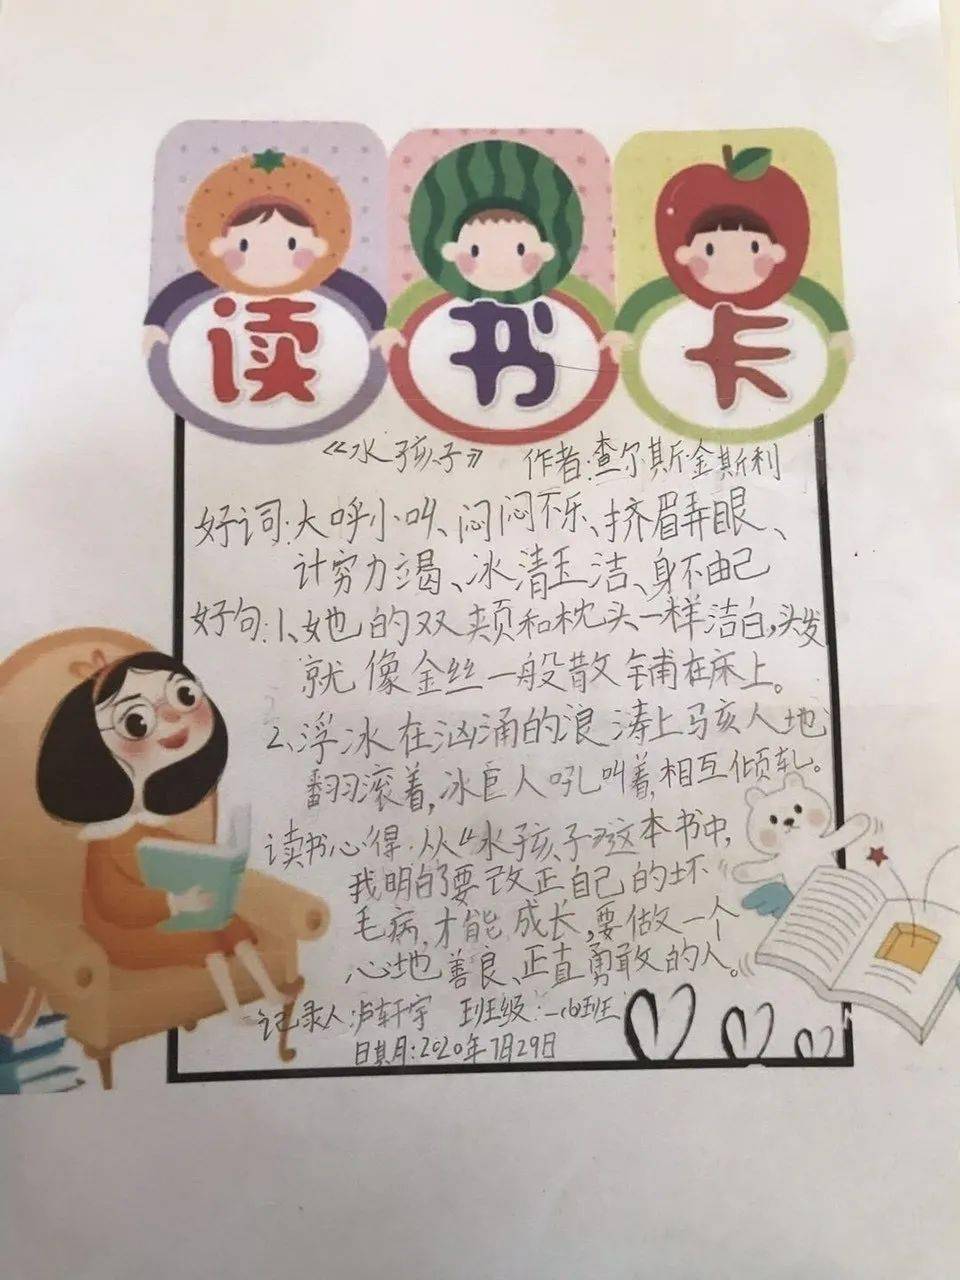 读书卡
《水孩子》 作者:查尔斯·金斯利
好词:大呼小叫、闷闷不乐、挤眉弄眼、
计穷力竭、冰清玉洁、身不由己
好句:1、她的双颊和枕头一样洁白,头发
就像金丝一般散铺在床上。
2、浮冰在汹涌的浪涛上骇人地
翻滚着,冰巨人吼叫着,相互倾轧。
读书心得:从《水孩子》这本书中,
我明白了要改正自己的坏
毛病,才能成长,要做一个
心地善良、正直勇敢的人。
记录人:卢轩宇 班级:班
日期:2020年7月29日